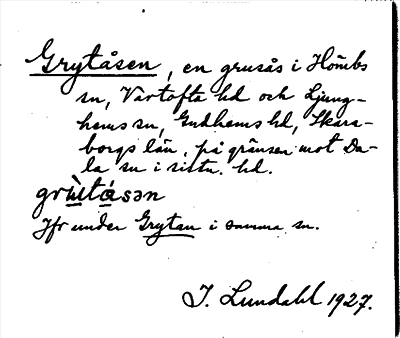 Grytåsen, en grusås i Hömbs
sn, Vartofta hd och Ljung-
hems sn, Gudhems hd, Skara-
borgs län, på gränsen mot Da-
la sn i sistn. hd.
grùtásən
Jfr under Grytan i samma sn.
I. Lundahl 1927.